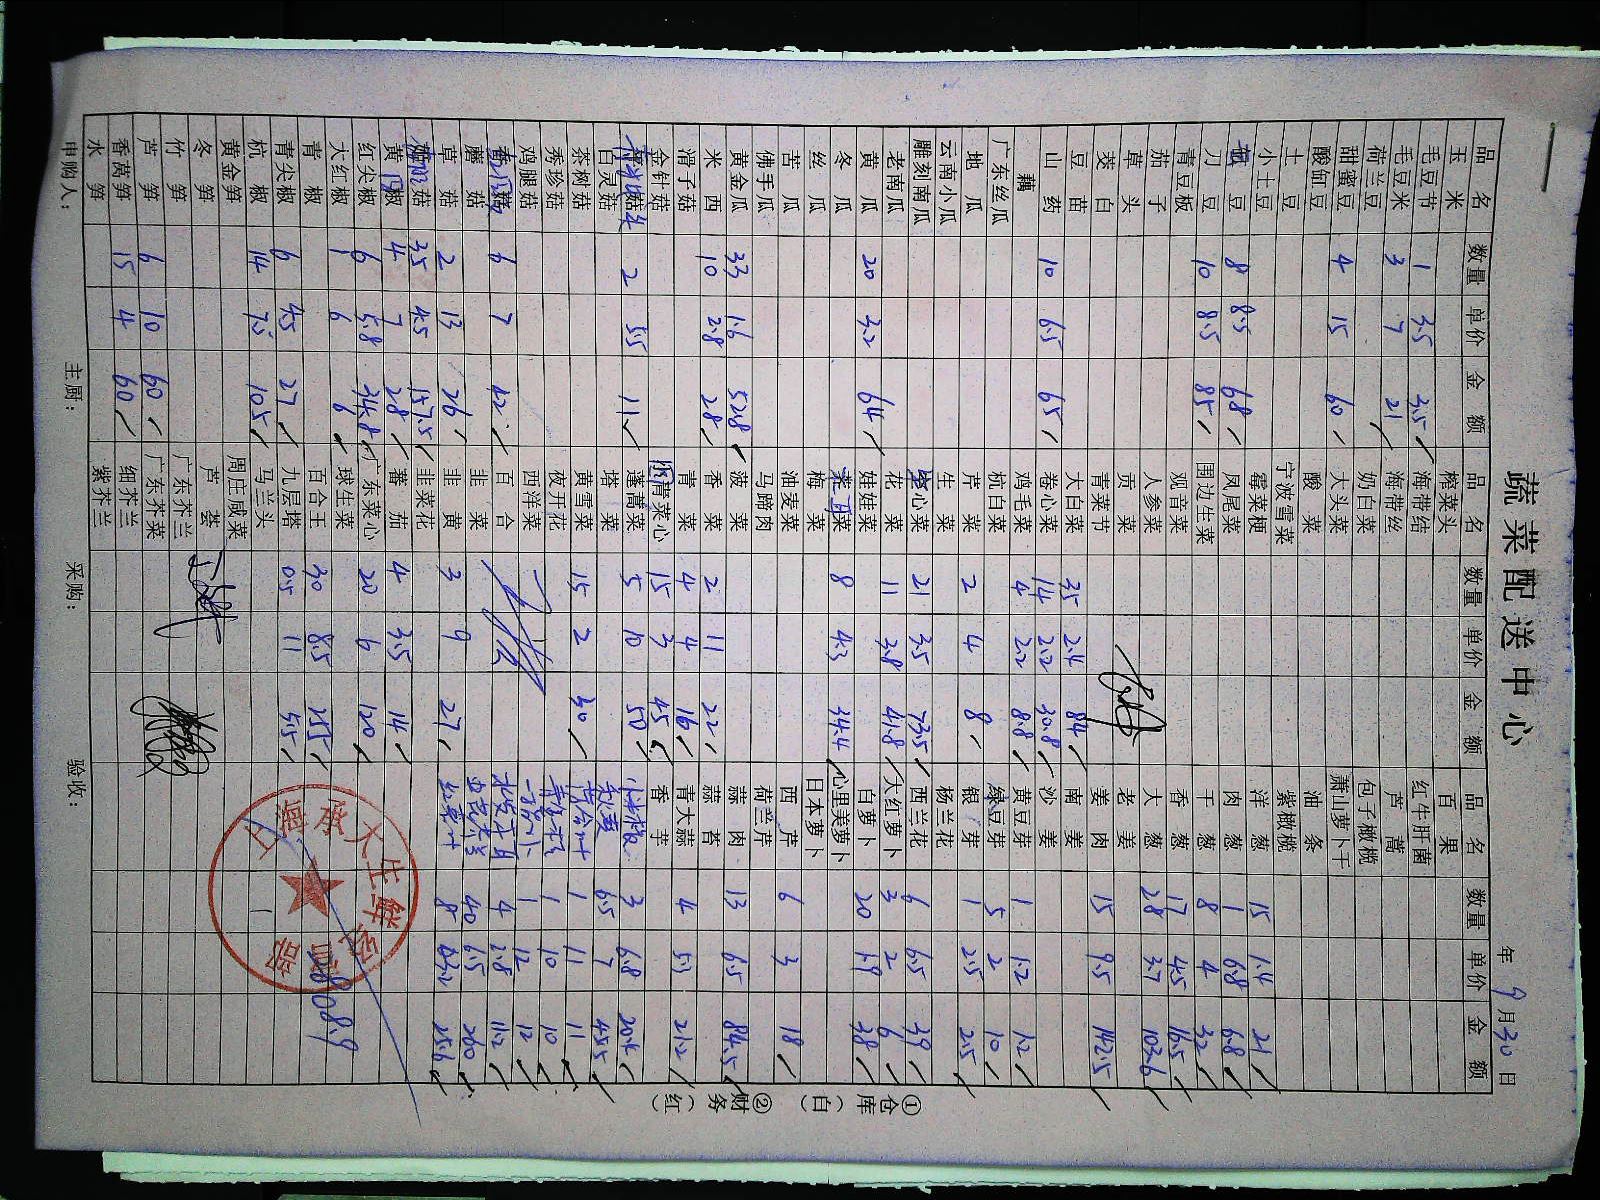 蔬菜配送中心
年 9月30日
品名 数量 单价 金额 品名 数量 单价 金额 品名 数量 单价 金额
玉米 榨菜头 百果
毛豆节 1 3.5 3.5 海带结 红牛肝菌
毛豆米 3 7 21 海带丝 芦蒿
荷兰豆 奶白菜 包子橄榄
甜蜜豆 4 15 60 大头菜 萧山萝卜干
酸缸豆 酸菜 油条
土豆 宁波雪菜 紫橄榄
小土豆 霉菜梗 洋葱 15 1.4 21
豆 8 8.5 68 凤尾菜 肉葱 1 6.8 6.8
刀豆 10 8.5 85 围边生菜 干葱 8 4 32
青豆板 观音菜 香葱 17 4.5 76.5
茄子 人参菜 大葱 28 3.7 103.6
草头 贡菜 老姜
茭白 青菜节 姜肉 15 9.5 142.5
豆苗 大白菜 35 2.4 84 南姜
山药 10 6.5 65 卷心菜 14 2.2 30.8 沙姜
藕 鸡毛菜 4 2.2 8.8 黄豆芽 1 1.2 1.2
广东丝瓜 杭白菜 绿豆芽 5 2 10
地瓜 芹菜 2 4 8 银芽 1 2.5 2.5
云南小瓜 生菜 杨兰花
雕刻南瓜 空心菜 21 3.5 73.5 西兰花 6 6.5 39
老南瓜 花菜 11 3.8 41.8 大红萝卜 3 2 6
黄瓜 20 3.2 64 娃娃菜 白萝卜 20 1.9 38
冬瓜 菜 8 4.3 34.4 心里美萝卜
丝瓜 梅菜 日本萝卜
苦瓜 油麦菜 西芹 6 3 18
佛手瓜 马蹄肉 荷兰芹
黄金瓜 33 1.6 52.8 菠菜 蒜肉 13 6.5 84.5
米西 10 2.8 28 香菜 2 11 22 蒜苔
滑子菇 青菜 4 4 16 青大蒜 4 5.3 21.2
金针菇 青菜心 15 3 45 香芋
2 5.5 11 蓬蒿菜 5 10 50 3 6.8 20.4
白灵菇 塔菜 6.5 7 45.5
茶树菇 黄雪菜 15 2 30 1 11 11
秀珍菇 夜开花 1 10 10
鸡腿菇 西洋菜 1 12 12
菇 6 7 42 百合 4 2.8 11.2
蘑菇 韭菜 40 6.5 260
草菇 2 13 26 韭黄 3 9 27 8 3.2 25.6
菇 35 4.5 157.5 韭菜花
黄椒 4 7 28 蕃茄 4 3.5 14
红尖椒 6 5.8 34.8 广东菜心 20 6 120
大红椒 1 6 6 球生菜
青椒 百合王 30 8.5 255
青尖椒 6 4.5 27 九层塔 0.5 11 5.5
杭椒 14 7.5 105 马兰头
黄金笋 周庄咸菜
冬笋 芦荟
竹笋 广东芥兰
芦笋 6 10 60 广东芥菜
香莴笋 15 4 60 细芥兰
水笋 紫芥兰
申购人： 主厨： 采购： 验收：
①仓库（白） ②财务（红）